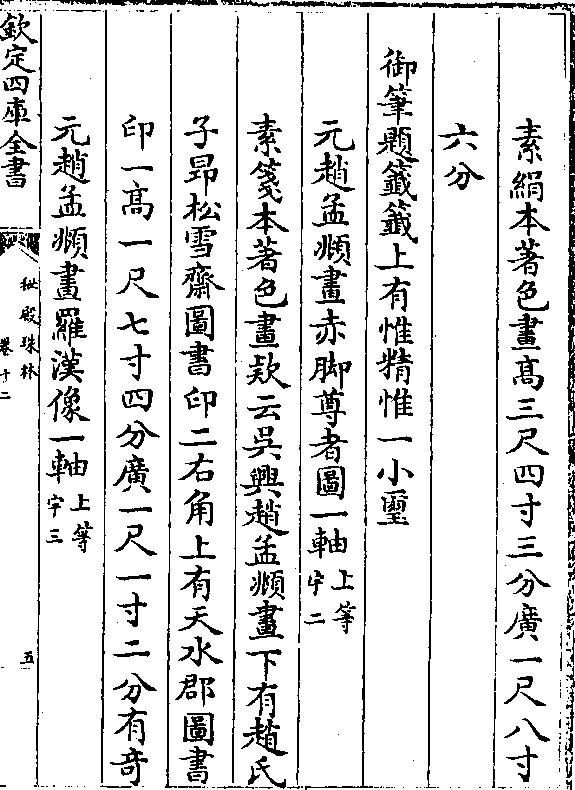 素絹本著色畫髙三尺四寸三分廣一尺八寸
六分
御筆題籤籤上有惟精惟一小璽
元趙孟頫畫赤脚尊者圖一軸上等宇二
素箋本著色畫欵云吳興趙孟頫畫下有趙氏
子昂松雪齋圖書印二右角上有天水郡圖書
印一髙一尺七寸四分廣一尺一寸二分有奇
元趙孟頫畫羅漢像一軸上等宇三
欽定四庫全書
秘殿珠林
卷十二
五